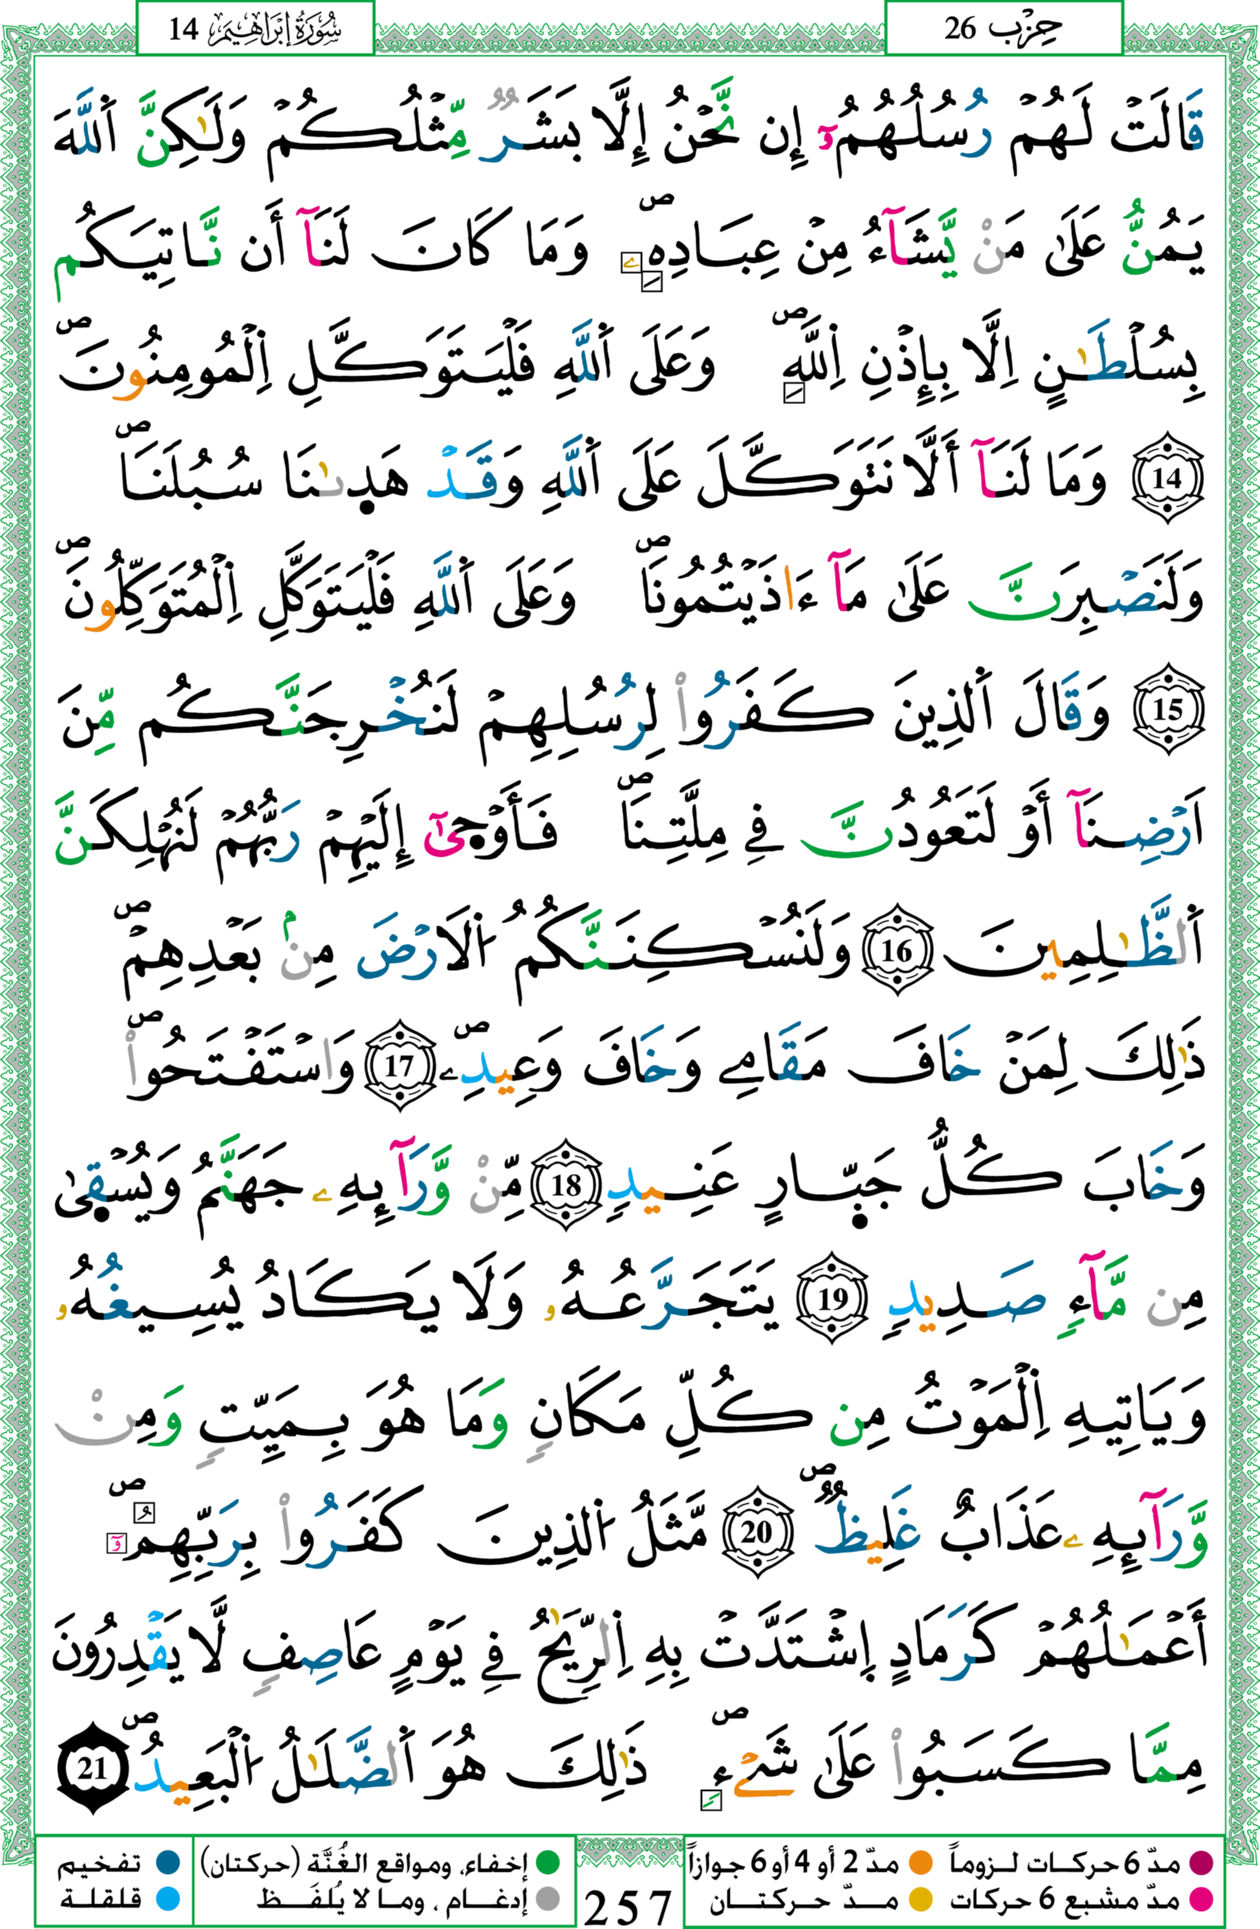 حِزْب 26
سُورَةُ إِبْرَاهِيم 14
قَالَتْ لَهُمْ رُسُلُهُمُۥٓ إِن نَّحْنُ إِلَّا بَشَرٌ مِّثْلُكُمْ وَلَٰكِنَّ اَ۬للَّهَ
يَمُنُّ عَلَىٰ مَنْ يَّشَآءُ مِنْ عِبَادِهِۦۖ وَمَا كَانَ لَنَآ أَن نَّاتِيَكُم
بِسُلْطَٰنٍ اِلَّا بِإِذْنِ اِ۬للَّهِۖ وَعَلَى اَ۬للَّهِ فَلْيَتَوَكَّلِ اِ۬لْمُومِنُونَۖ
14 وَمَا لَنَآ أَلَّا نَتَوَكَّلَ عَلَى اَ۬للَّهِ وَقَدْ هَد۪ىٰنَا سُبُلَنَاۖ
وَلَنَصْبِرَنَّ عَلَىٰ مَآ ءَاذَيْتُمُونَاۖ وَعَلَى اَ۬للَّهِ فَلْيَتَوَكَّلِ اِ۬لْمُتَوَكِّلُونَۖ
15 وَقَالَ اَ۬لذِينَ كَفَرُوا۟ لِرُسُلِهِمْ لَنُخْرِجَنَّكُم مِّنَ
اَرْضِنَآ أَوْ لَتَعُودُنَّ فِے مِلَّتِنَاۖ فَأَوْح۪ىٰٓ إِلَيْهِمْ رَبُّهُمْ لَنُهْلِكَنَّ
اَ۬لظَّٰلِمِينَ 16 وَلَنُسْكِنَنَّكُمُ اُ۬لَارْضَ مِنۢ بَعْدِهِمْۖ
ذَٰلِكَ لِمَنْ خَافَ مَقَامِے وَخَافَ وَعِيدِۦۖ 17 وَاسْتَفْتَحُوا۟ۖ
وَخَابَ كُلُّ جَبّ۪ارٍ عَنِيدٍ 18 مِّنْ وَّرَآئِهِۦ جَهَنَّمُ وَيُسْق۪ىٰ
مِن مَّآءٍ صَدِيدٍ 19 يَتَجَرَّعُهُۥ وَلَا يَكَادُ يُسِيغُهُۥ
وَيَاتِيهِ اِ۬لْمَوْتُ مِن كُلِّ مَكَانٍ وَمَا هُوَ بِمَيِّتٍ وَمِنْ
وَّرَآئِهِۦ عَذَابٌ غَلِيظٌۖ 20 مَّثَلُ اُ۬لذِينَ كَفَرُوا۟ بِرَبِّهِمُۥٓۖ
أَعْمَٰلُهُمْ كَرَمَادٍ اِ۪شْتَدَّتْ بِهِ اِ۬لرِّيَٰحُ فِے يَوْمٍ عَاصِفٍ لَّا يَقْدِرُونَ
مِمَّا كَسَبُوا۟ عَلَىٰ شَےْءٍۖ ذَٰلِكَ هُوَ اَ۬لضَّلَٰلُ اُ۬لْبَعِيدُۖ 21
مدّ 6 حركات لـزوماً
مدّ 2 أو 4 أو 6 جوازاً
إخفاء، ومواقع الغُنَّة (حركتان)
تفخيم
مدّ مشبع 6 حركات
مـدّ حركتـان
إدغـام ، ومـا لا يُلفَـظ
قلقلة
257